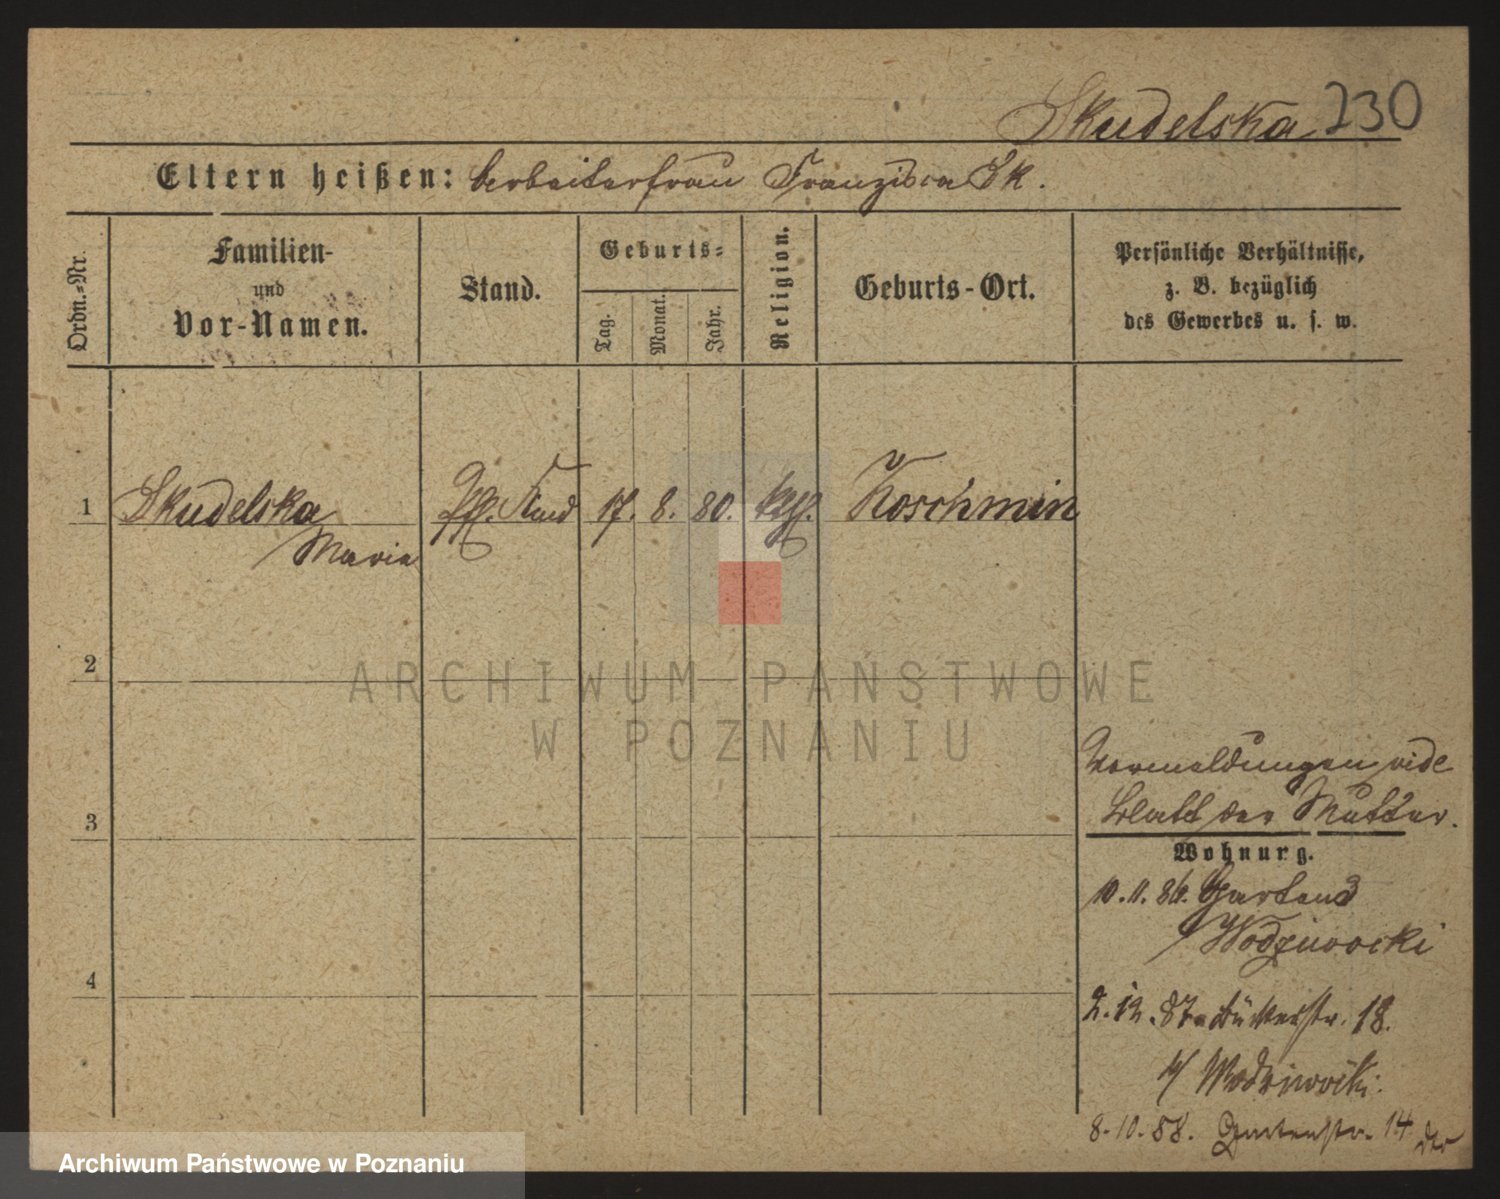 Skudelska 230
Eltern heißen: Arbeiterfrau Franziska Sk.
Ordn.-Nr.
Familien-
und
Vor-Namen.
Stand.
Geburts-
Tag.
Monat.
Jahr.
Religion.
Geburts-Ort.
Persönliche Verhältnisse,
z. B. bezüglich
des Gewerbes u. s. w.
1 Skudelska Pfl. Kind 17. 8. 80. kath. Koschmin
Maria
2
ARCHIWUM PAŃSTWOWE
W POZNANIU
Vormeldungen vide
3 Blatt der Mutter.
Wohnung.
10.11.86. Garten 3
4 / Wodziwocki
2.12.87. Bäckerstr. 18.
b/ Wodziwocki.
8.10.88. Gartenstr. 14
Archiwum Państwowe w Poznaniu